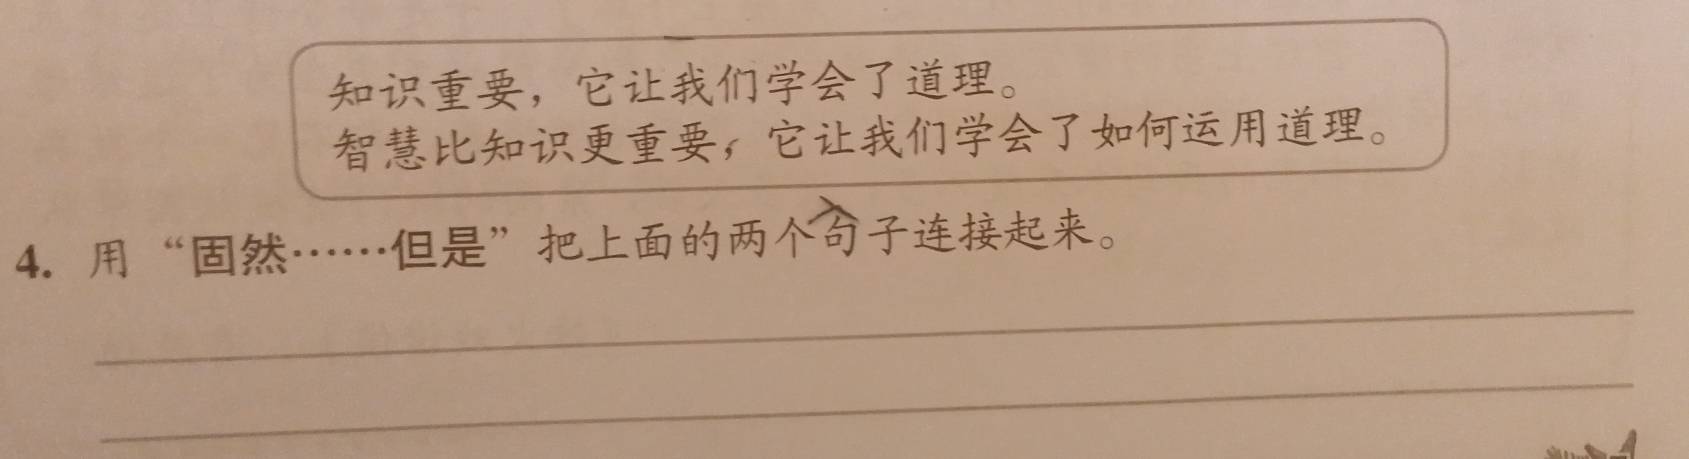 知识重要，它让我们学会了道理。
智慧比知识更重要，它让我们学会了如何运用道理。
4. 用“固然……但是”把上面的两个句子连接起来。